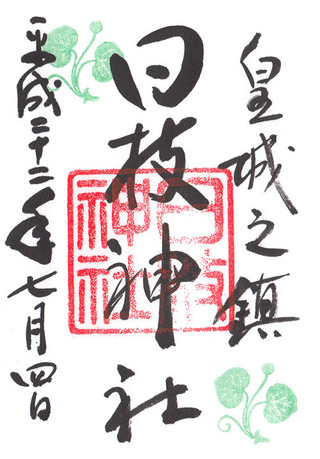 皇城之鎮
日枝神社
日枝神社
平成二十二年七月四日